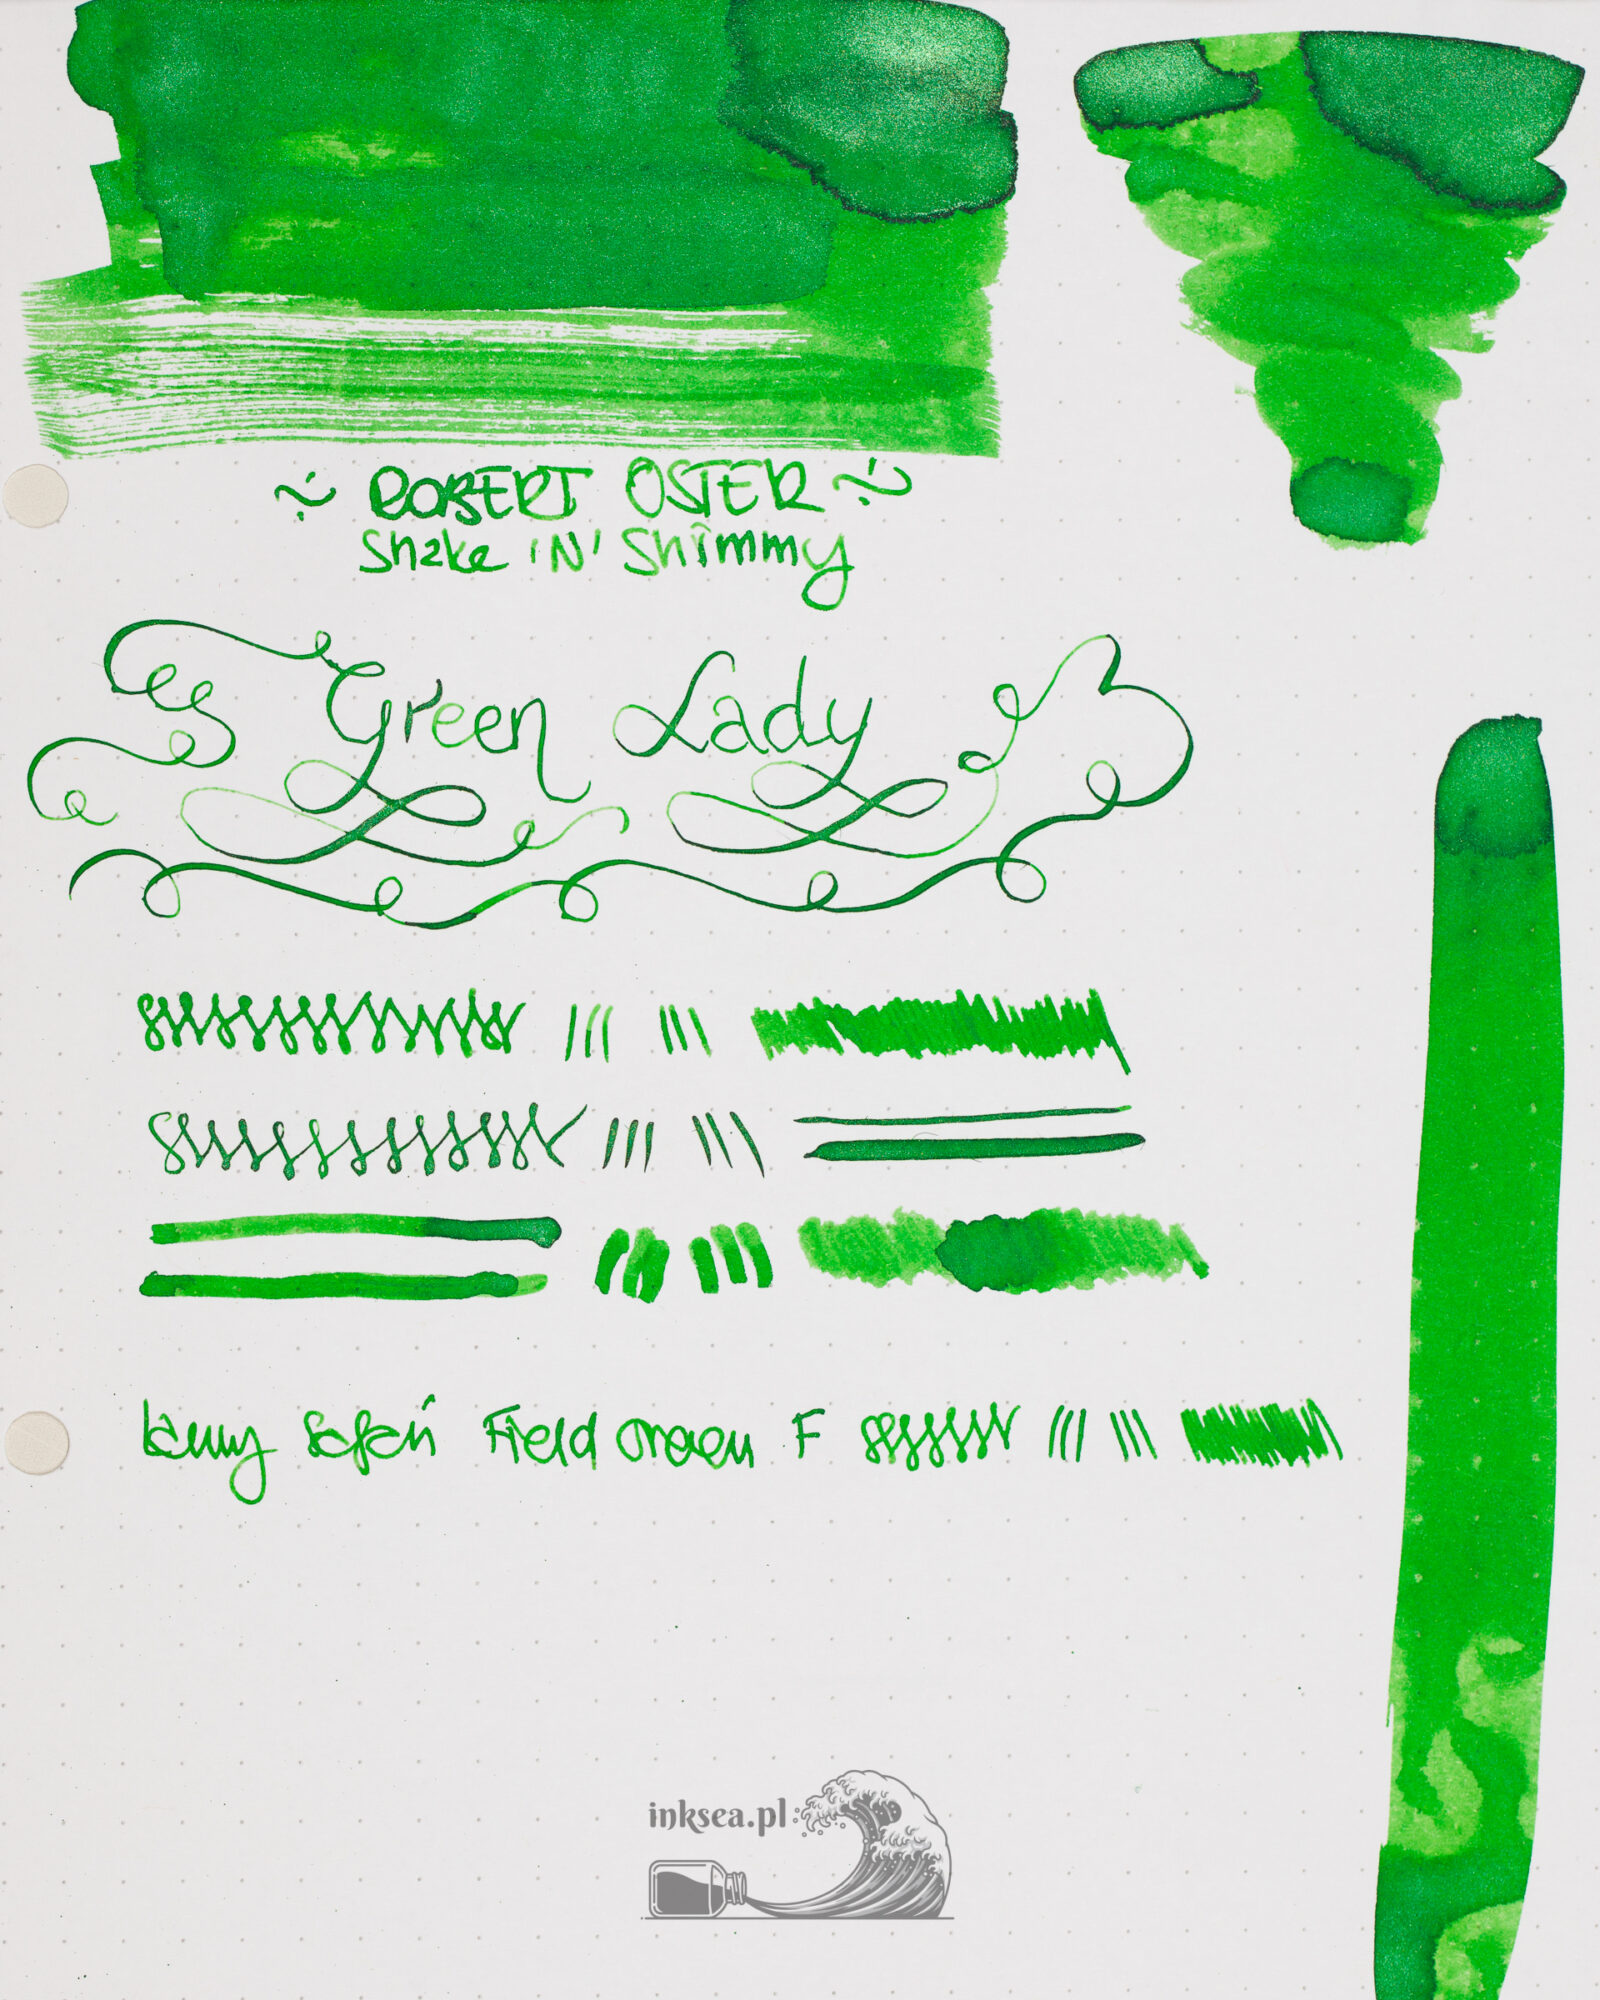 ~ ROBERT OSTER ~
Shake 'N' Shimmy
Green Lady
Lamy Safari Field Green F
inksea.pl